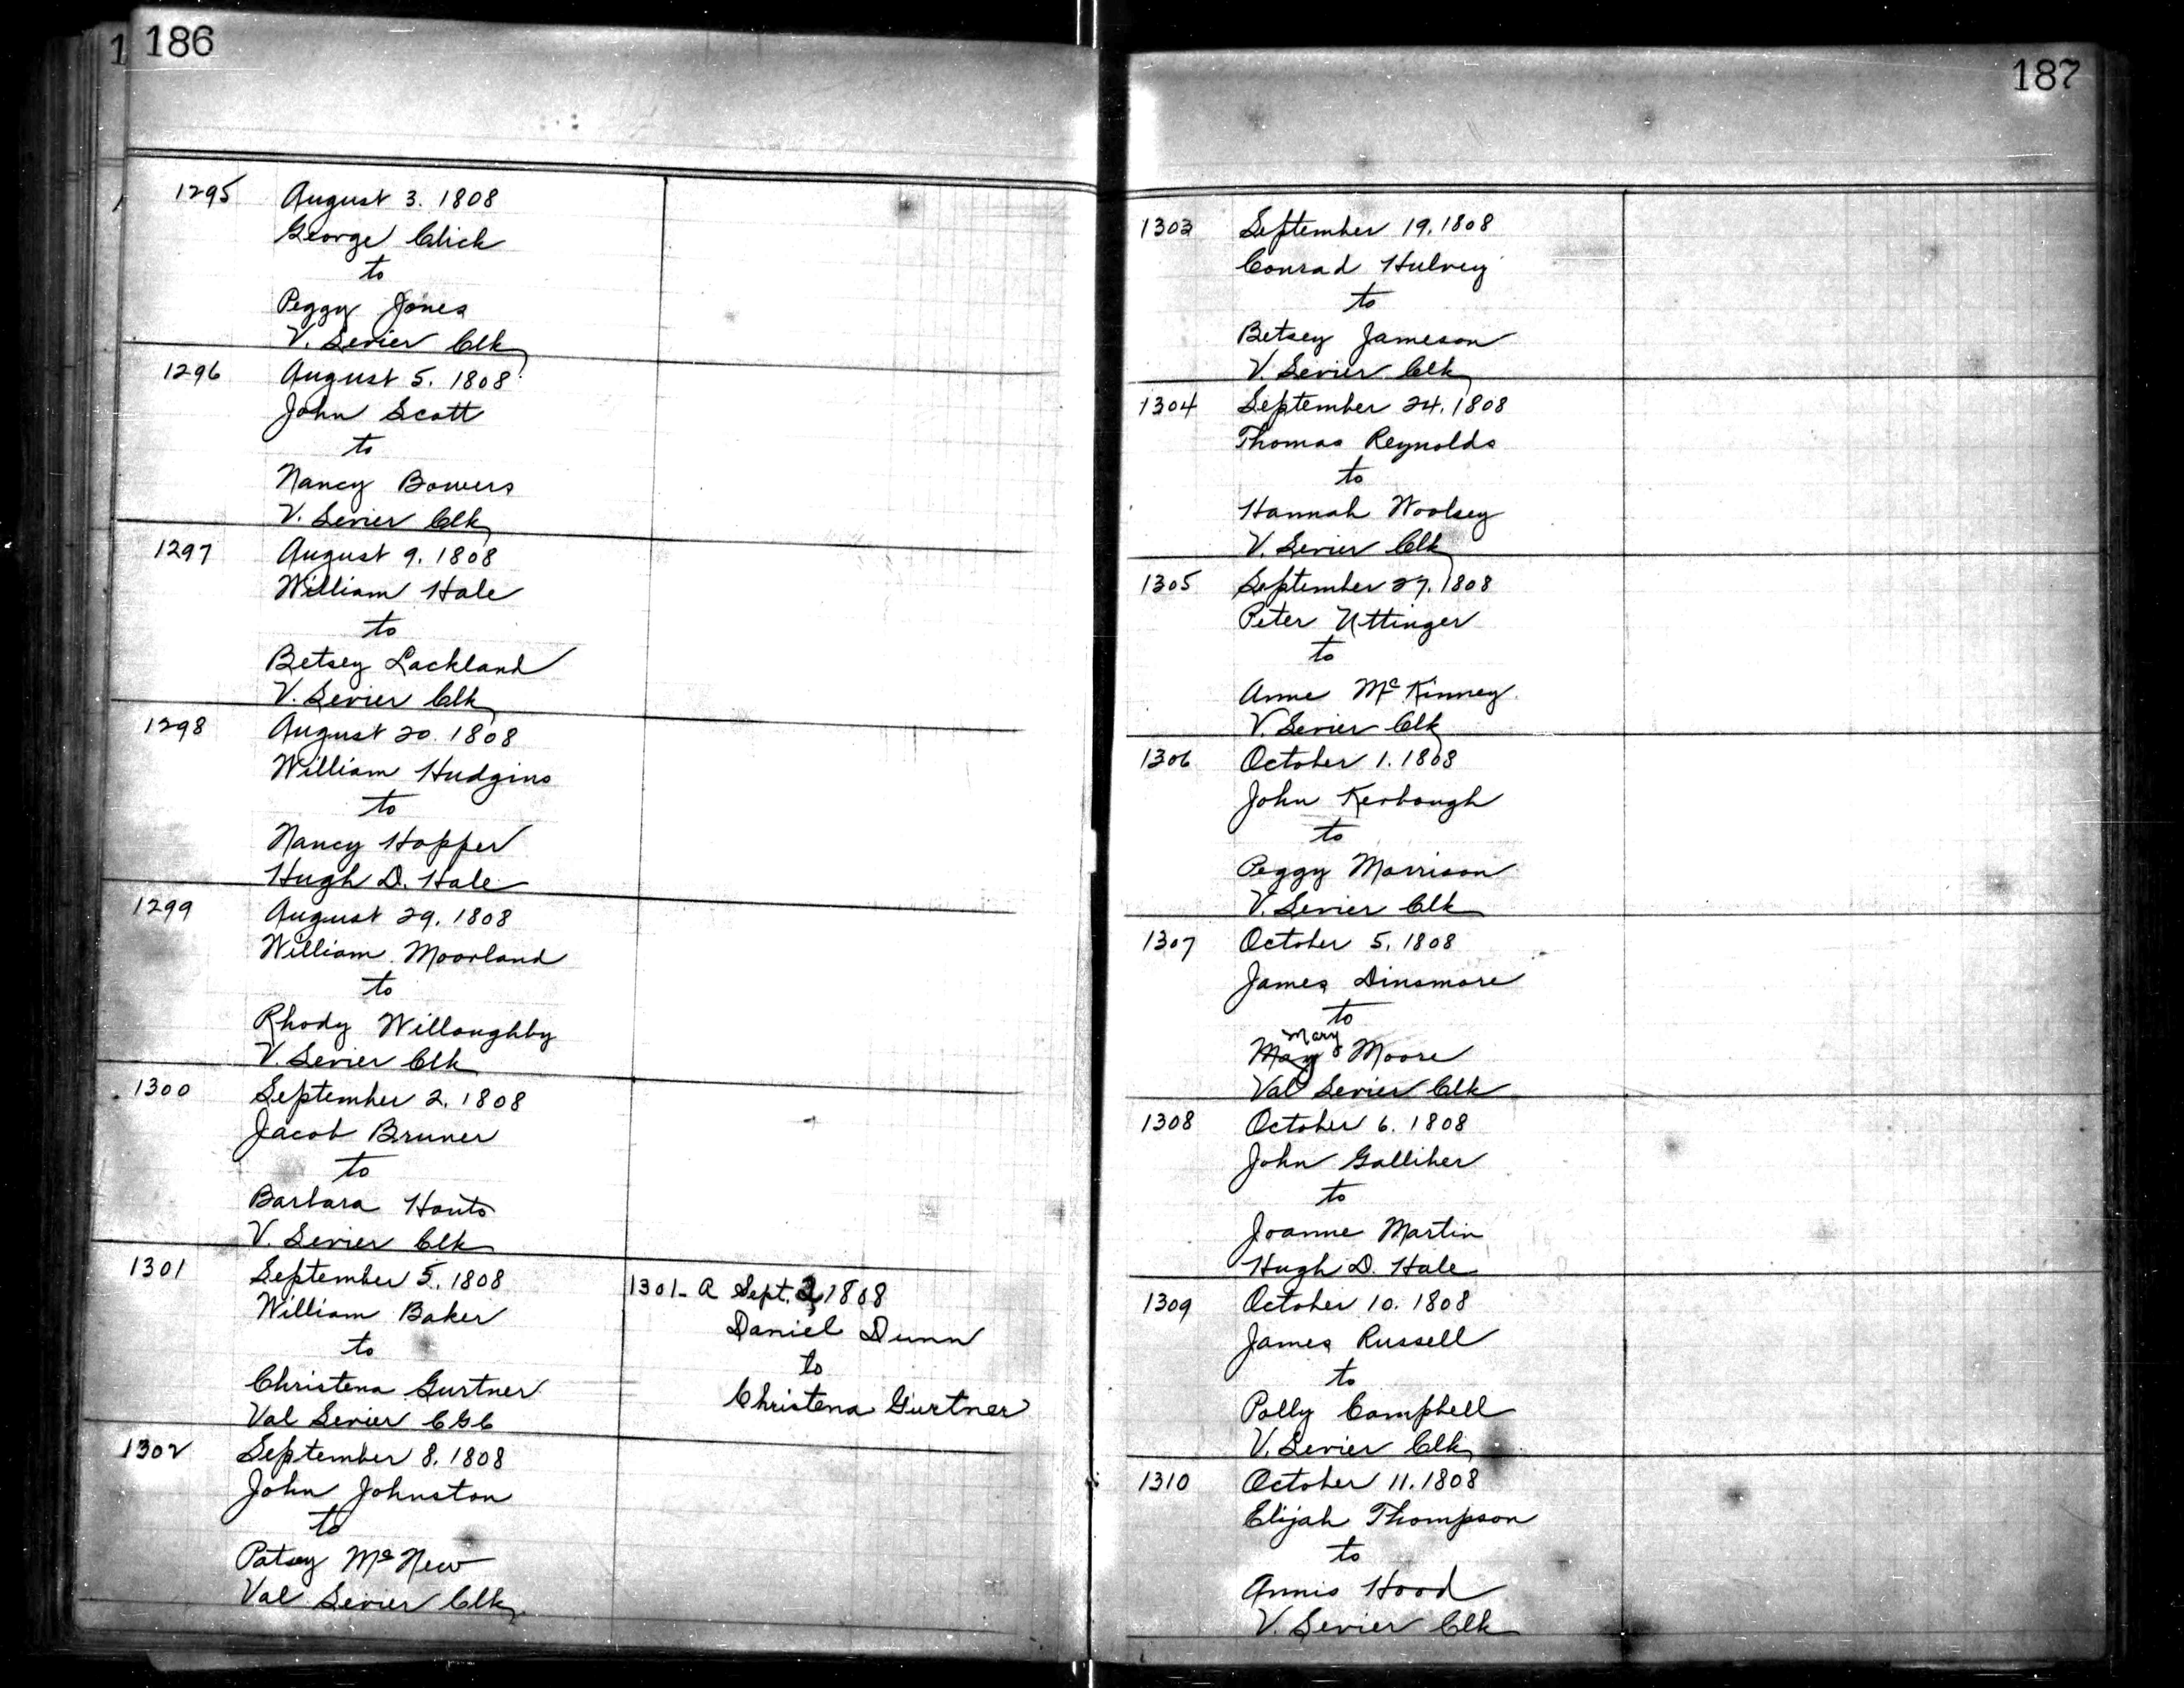 1 186
1295 August 3. 1808
George Click
to
Peggy Jones
V. Sevier Clk
1296 August 5. 1808
John Scott
to
Nancy Bowers
V. Sevier Clk
1297 August 9. 1808
William Hale
to
Betsey Lackland
V. Sevier Clk
1298 August 20. 1808
William Hudgins
to
Nancy Hopper
Hugh D. Hale
1299 August 29. 1808
William Moorland
to
Rhody Willoughby
V. Sevier Clk
1300 September 2. 1808
Jacob Bruner
to
Barbara Houts
V. Sevier Clk
1301 September 5. 1808
William Baker
to
Christena Gurtner
Val Sevier CGC
1301-A Sept. 2, 1808
Daniel Dunn
to
Christena Gurtner
1302 September 8. 1808
John Johnston
to
Patsey McNew
Val Sevier Clk
187
1303 September 19. 1808
Conrad Hulvey
to
Betsey Jameson
V. Sevier Clk
1304 September 24. 1808
Thomas Reynolds
to
Hannah Woolsey
V. Sevier Clk
1305 September 27. 1808
Peter Uttinger
to
Anne McKinney
V. Sevier Clk
1306 October 1. 1808
John Kerbough
to
Peggy Morrison
V. Sevier Clk
1307 October 5. 1808
James Dinsmore
to
Mary
May Moore
Val Sevier Clk
1308 October 6. 1808
John Galliher
to
Joanne Martin
Hugh D. Hale
1309 October 10. 1808
James Russell
to
Polly Campbell
V. Sevier Clk
1310 October 11. 1808
Elijah Thompson
to
Annis Hood
V. Sevier Clk